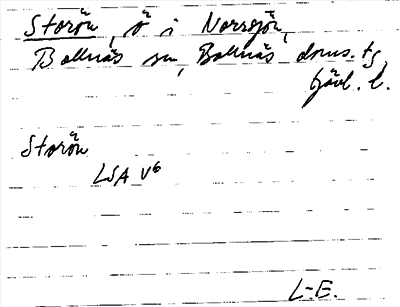 Storön, ö i Norrsjön,
Bollnäs sn, Bollnäs doms. tg
Gävl. l.
Storön
LSA V6
L-E.